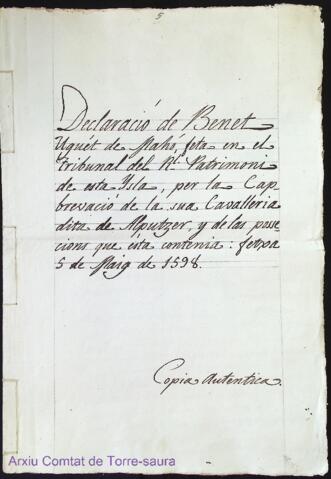 5
Declaració de Benet
Uguét de Mahó, feta en el
Tribunal del Rl. Patrimoni
de esta Ysla, per la Cap
brevació de la sua Cavalleria
dita de Alputzer, y de las posse
cions que ésta contenia: fetxa
5 de Maig de 1598.
Copia autentica.
Arxiu Comtat de Torre-saura